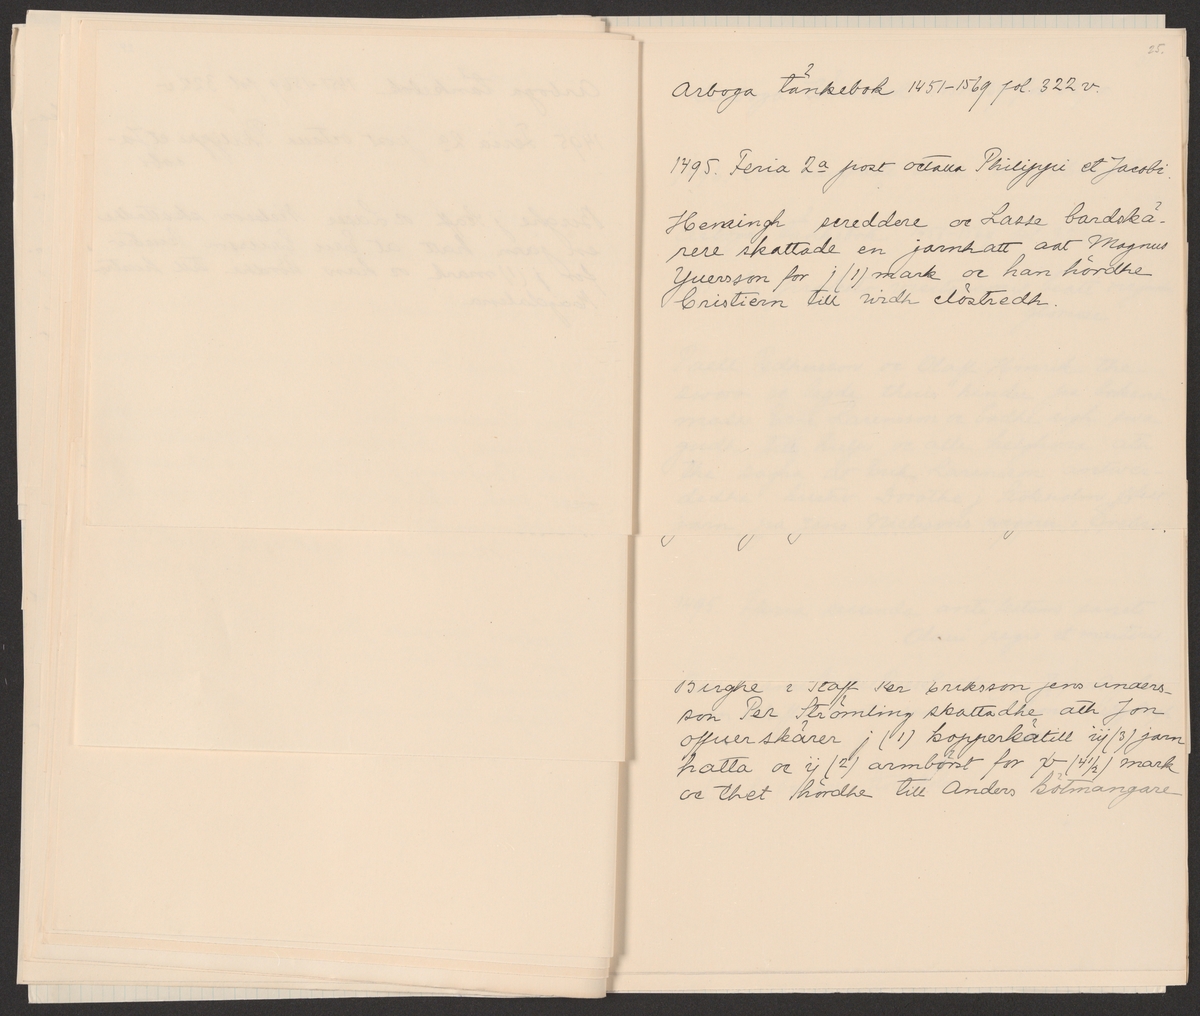 25.
Arboga tänkebok 1451-1569 fol. 322 v.
1495. Feria 2a post octaua Philippi et Jacobi.
Hemingh screddere oc Lasse bardskä-
rere skattade en jarnhatt aat Magnus
Yuersson for j (1) mark oc han hördhe
Cristiern till widh clöstredh.
Birghe i Staff Per Eriksson jens anders-
son Per Strömling skattadhe ath Jon
offuerskärer j (1) kopperkätill iij (3) jarn
hatta oc ij (2) armbörst for v (4½) mark
oc thet hördhe till Anders kötmangare